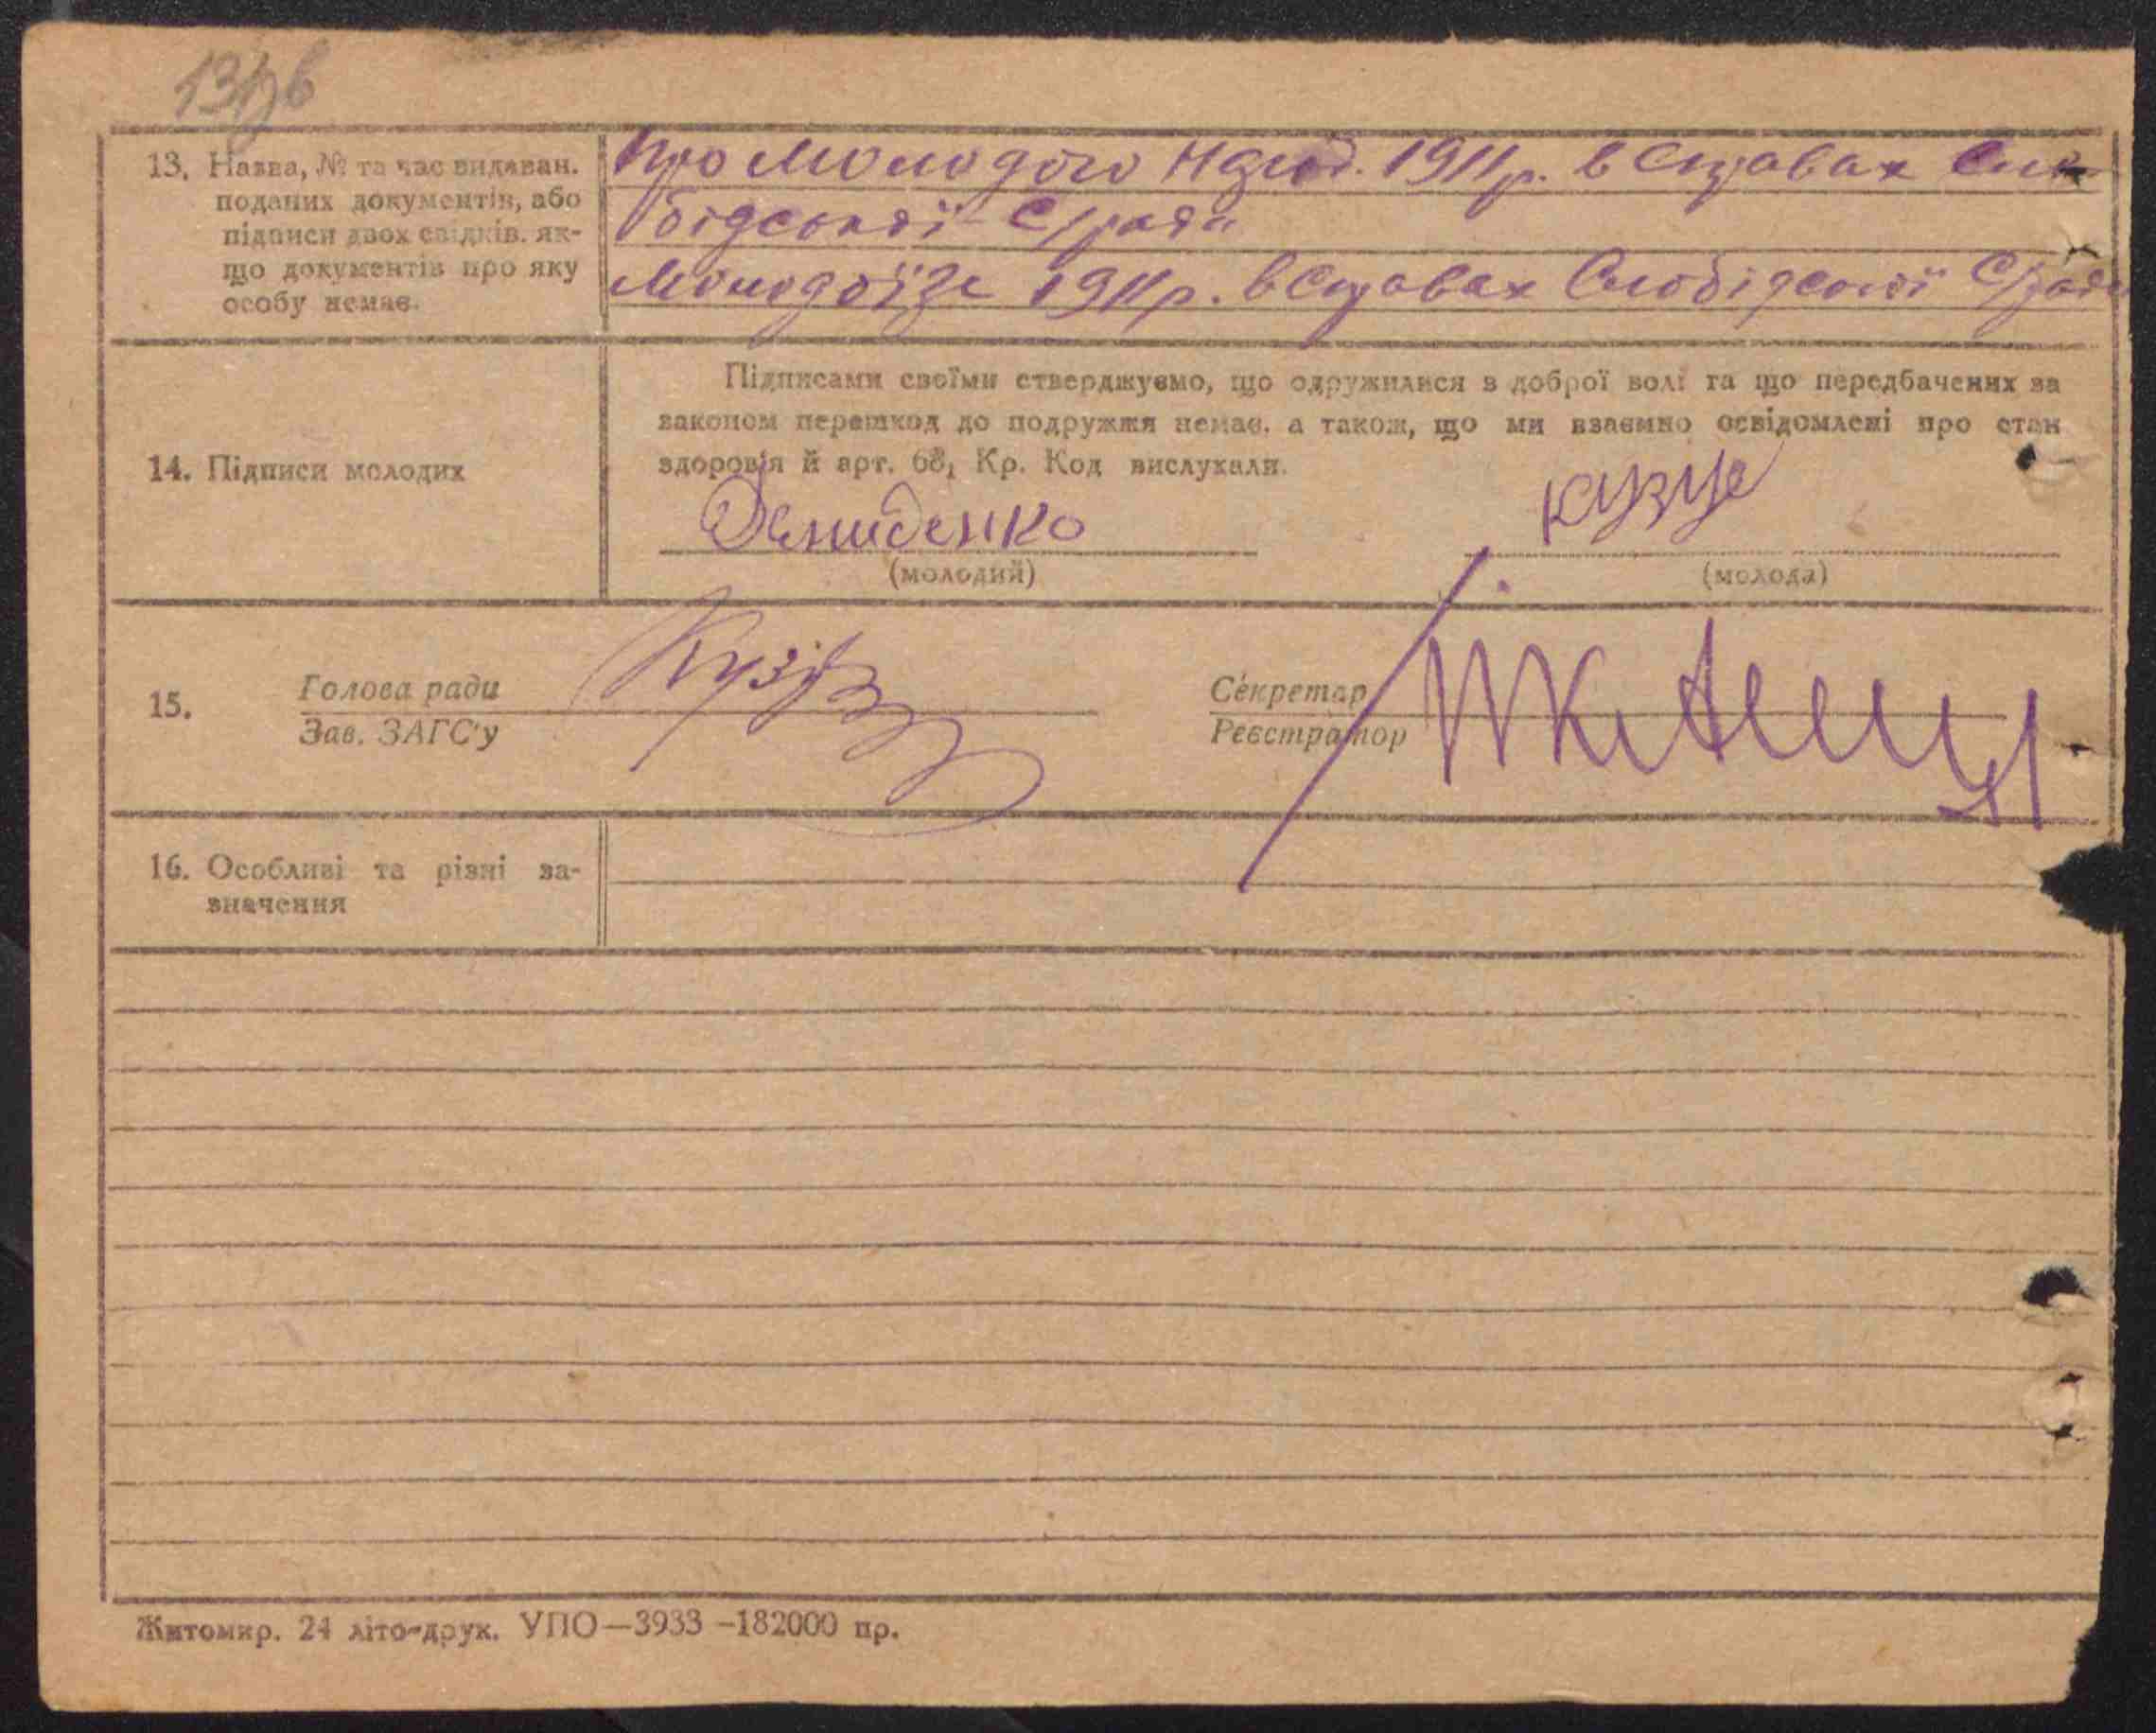 13. Назва, № та час видаван.
поданих документів, або
підписи двох свідків. як-
що документів про яку
особу немає.
Про Молодого Народ. 1911 р. в Справах Сло-
бідської С/ради
Молодої 1911 р. в Справах Слобідської С/ради
14. Підписи молодих
Підписами своїми стверджуємо, що одружилися з доброї волі та що передбачених за
законом перешкод до подружжя немає, а також, що ми взаємно освідомлені про стан
здоров'я й арт. 68₁ Кр. Код вислухали.
Демиденко
(молодий)
(молода)
15. Голова ради
Зав. ЗАГС'у
Секретар
Реєстратор
16. Особливі та різні за-
значення
Житомир. 24 літо-друк. УПО—3933 –182000 пр.